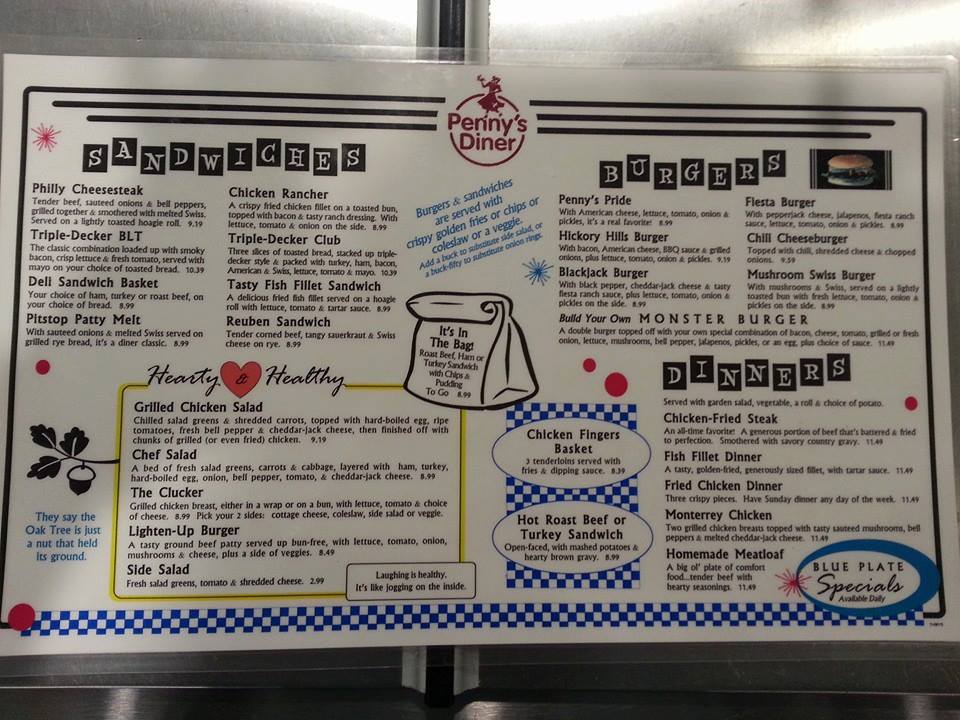 Penny's
Diner
SANDWICHES
Philly Cheesesteak
Tender beef, sauteed onions & bell peppers,
grilled together & smothered with melted Swiss.
Served on a lightly toasted hoagie roll. 9.19
Triple-Decker BLT
The classic combination loaded up with smoky
bacon, crisp lettuce & fresh tomato, served with
mayo on your choice of toasted bread. 10.39
Deli Sandwich Basket
Your choice of ham, turkey or roast beef, on
your choice of bread. 8.99
Pitstop Patty Melt
With sauteed onions & melted Swiss served on
grilled rye bread, it's a diner classic. 8.99
Chicken Rancher
A crispy fried chicken fillet on a toasted bun,
topped with bacon & tasty ranch dressing. With
lettuce, tomato & onion on the side. 8.99
Triple-Decker Club
Three slices of toasted bread, stacked up triple-
decker style & packed with turkey, ham, bacon,
American & Swiss, lettuce, tomato & mayo. 10.39
Tasty Fish Fillet Sandwich
A delicious fried fish fillet served on a hoagie
roll with lettuce, tomato & tartar sauce. 8.99
Reuben Sandwich
Tender corned beef, tangy sauerkraut & Swiss
cheese on rye. 8.99
Burgers & sandwiches
are served with
crispy golden fries or chips or
coleslaw or a veggie.
Add a buck to substitute side salad, or
a buck-fifty to substitute onion rings.
It's In
The Bag!
Roast Beef, Ham or
Turkey Sandwich
with Chips &
Pudding
To Go 8.99
Hearty & Healthy
Grilled Chicken Salad
Chilled salad greens & shredded carrots, topped with hard-boiled egg, ripe
tomatoes, fresh bell pepper & cheddar-jack cheese, then finished off with
chunks of grilled (or even fried) chicken. 9.19
Chef Salad
A bed of fresh salad greens, carrots & cabbage, layered with ham, turkey,
hard-boiled egg, onion, bell pepper, tomato, & cheddar-jack cheese. 8.99
The Clucker
Grilled chicken breast, either in a wrap or on a bun, with lettuce, tomato & choice
of cheese. 8.99 Pick your 2 sides: cottage cheese, coleslaw, side salad or veggie.
Lighten-Up Burger
A tasty ground beef patty served up bun-free, with lettuce, tomato, onion,
mushrooms & cheese, plus a side of veggies. 8.49
Side Salad
Fresh salad greens, tomato & shredded cheese. 2.99
Laughing is healthy.
It's like jogging on the inside.
They say the
Oak Tree is just
a nut that held
its ground.
Chicken Fingers
Basket
3 tenderloins served with
fries & dipping sauce. 8.39
Hot Roast Beef or
Turkey Sandwich
Open-faced, with mashed potatoes &
hearty brown gravy. 8.99
BURGERS
Penny's Pride
With American cheese, lettuce, tomato, onion &
pickles, it's a real favorite! 8.99
Hickory Hills Burger
With bacon, American cheese, BBQ sauce & grilled
onions, plus lettuce, tomato, onion & pickles. 9.19
Blackjack Burger
With black pepper, cheddar-jack cheese & tasty
fiesta ranch sauce, plus lettuce, tomato, onion &
pickles on the side. 8.99
Fiesta Burger
With pepperjack cheese, jalapenos, fiesta ranch
sauce, lettuce, tomato, onion & pickles. 8.99
Chili Cheeseburger
Topped with chili, shredded cheese & chopped
onions. 9.59
Mushroom Swiss Burger
With mushrooms & Swiss, served on a lightly
toasted bun with fresh lettuce, tomato, onion &
pickles on the side. 8.99
Build Your Own MONSTER BURGER
A double burger topped off with your own special combination of bacon, cheese, tomato, grilled or fresh
onion, lettuce, mushrooms, bell pepper, jalapenos, pickles, or an egg, plus choice of sauce. 11.49
DINNERS
Served with garden salad, vegetable, a roll & choice of potato.
Chicken-Fried Steak
An all-time favorite! A generous portion of beef that's battered & fried
to perfection. Smothered with savory country gravy. 11.49
Fish Fillet Dinner
A tasty, golden-fried, generously sized fillet, with tartar sauce. 11.49
Fried Chicken Dinner
Three crispy pieces. Have Sunday dinner any day of the week. 11.49
Monterrey Chicken
Two grilled chicken breasts topped with tasty sauteed mushrooms, bell
peppers & melted cheddar-jack cheese. 11.49
Homemade Meatloaf
A big ol' plate of comfort
food...tender beef with
hearty seasonings. 11.49
BLUE PLATE
Specials
Available Daily